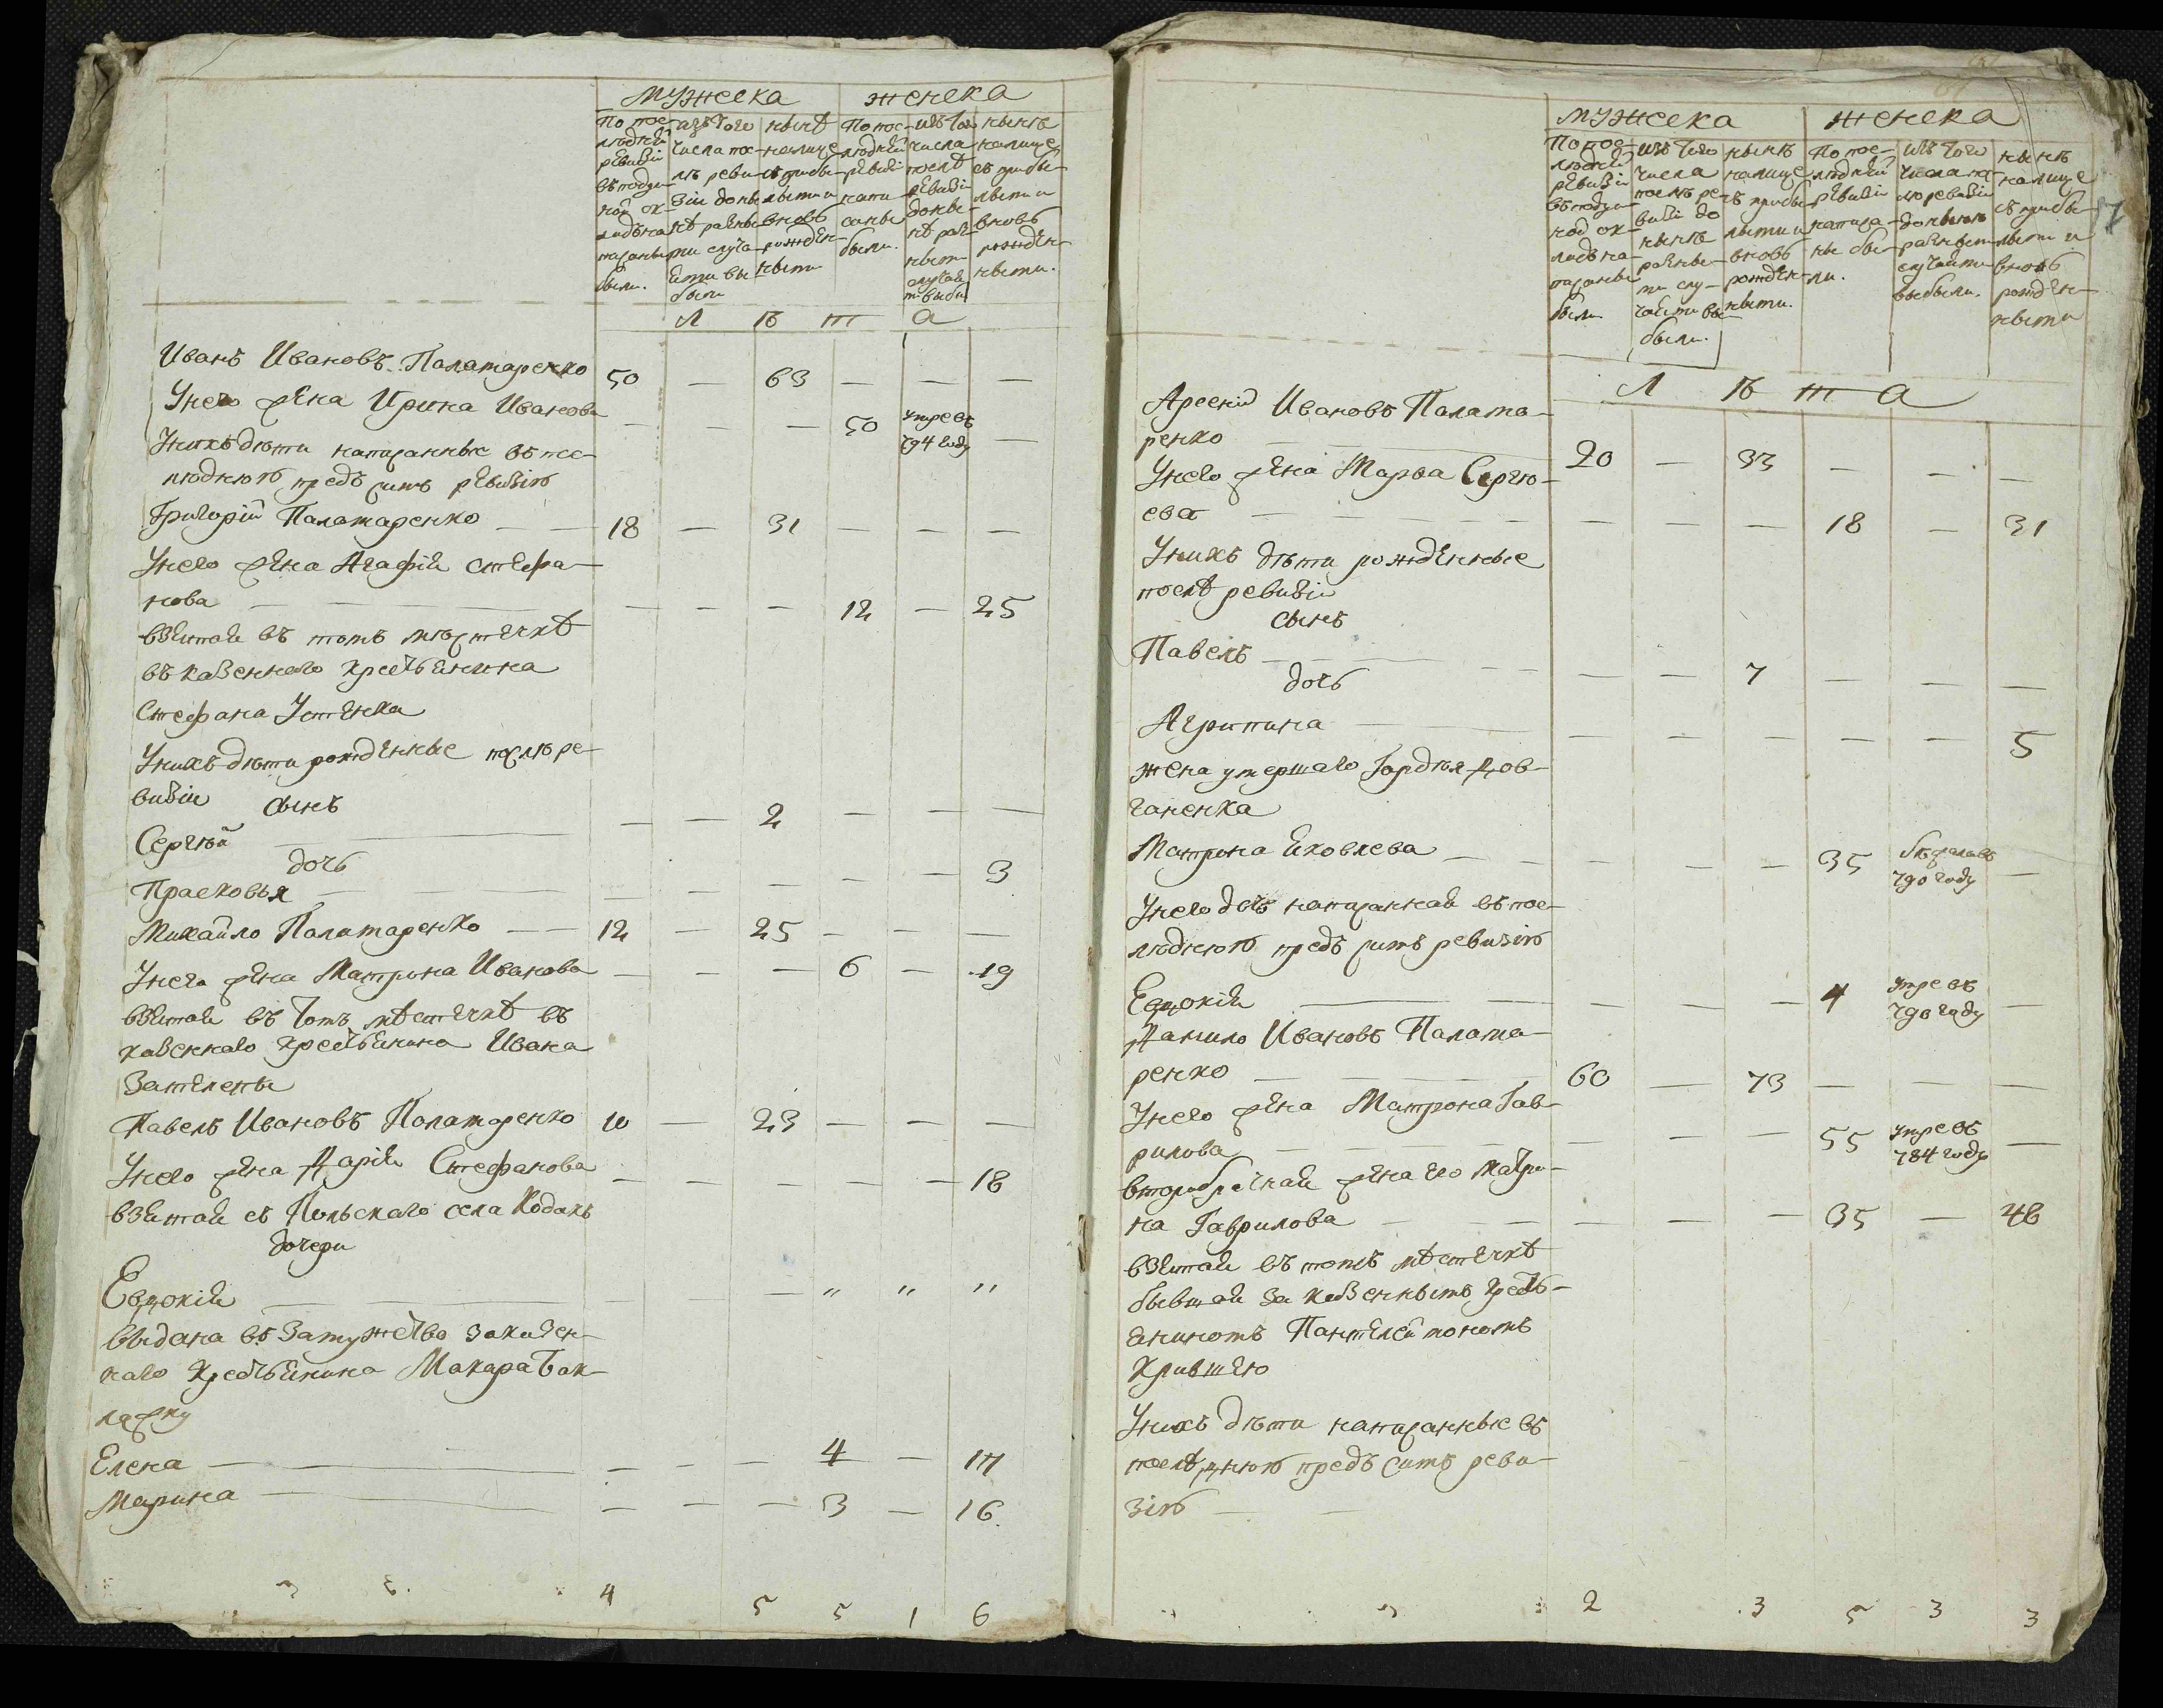 мужеска женска
По пос-
лѣдней
ревизіи
въ подуш-
ной ок-
ладъ на
писаны
были.
изъ того
числа пос-
лѣ реви-
зіи до ны
нѣ разны
ми случа-
еми вы
были
нынѣ
налице
съ прибы-
лыми и
вновь
рожден-
ными
По пос-
лѣдней
ревизіи
напи-
саны
были.
изъ того
числа
послѣ
ревизіи
до ны-
нѣ раз-
ными
случаи
ми выбы
нынѣ
налице
съ прибы-
лыми и
вновь
рожден-
ными.
Л ѣ т а
Иванъ Ивановъ Паламаренко 50 — 63 — — —
У него жена Ирина Иванова — — — 50 умре въ 794 году —
У нихъ дѣти написанные въ пос-
лѣднюю предъ симъ ревизію
Григорій Паламаренко — — 18 — 31 — —
У него жена Агафія Стефа-
нова — — — — — 12 — 25
взятая въ томъ мѣстечкѣ
въ казеннаго крестьянина
Стефана Устенка
У нихъ дѣти рожденные послѣ ре-
визіи сынъ
Сергѣй — — — 2 — — —
дочь
Прасковья — — — — — — 3
Михайло Паламаренко — — 12 — 25 — — —
У него жена Матрона Иванова — — — 6 — 19
взятая въ томъ мѣстечкѣ въ
казеннаго крестьянина Ивана
Зателепы
Павелъ Ивановъ Паламаренко 10 — 23 — — —
У него жена Дарія Стефанова — — — — — 18
взятая съ Польскаго села Кодакъ
дочери
Евдокія — — — — — " " "
выдана въ замужество за казен-
наго крестьянина Макара Бак-

Елена — — — — — 4 — 17
Марина — — — — 3 — 16.
4 5 5 1 6
мужеска женска
По пос-
лѣдней
ревизіи
въ подуш-
ной ок-
ладъ на-
писаны
были
изъ того
числа
послѣ ре-
визіи до
нынѣ
разны-
ми слу-
чаеми вы
были.
нынѣ
налице
съ прибы
лыми и
вновь
рожден-
ными.
По пос-
лѣдней
ревизіи
написа-
ны бы-
ли.
изъ того
числа по-
слѣ ревизіи
до нынѣ
разными
случайми
выбыли.
нынѣ
налице
съ прибы-
лыми и
вновь
рожден-
ными
Л ѣ т а
Арсеній Ивановъ Палама-
ренко — 20 — 33 — — —
У него жена Марѳа Сергѣ-
ева — — — — 18 — 31
У нихъ дѣти рожденные
послѣ ревизіи
сынъ
Павелъ — — — — — 7 — — —
дочь
Агрипина — — — — — — — 5
жена умершаго Гордѣя Дов-
ганенка
Матрона Яковлева — — — — 35 бѣжала въ 790 году —
У него дочь написанная въ пос-
лѣднюю предъ симъ ревизію
Евдокія — — — — — 4 умре въ 790 году —
Данило Ивановъ Палама-
ренко — 60 — 73 — — —
У него жена Матрона Гав-
рилова — — — — 55 умре въ 784 году —
второбрачная жена его Матро-
на Гаврилова — — — — — 35 — 48
взятая въ томъ мѣстечкѣ
бывшая за казеннымъ кресть-
яниномъ Пантелеймономъ
Крившею
У нихъ дѣти написанные въ
послѣднюю предъ симъ реви-
зію — —
2 3 5 3 3